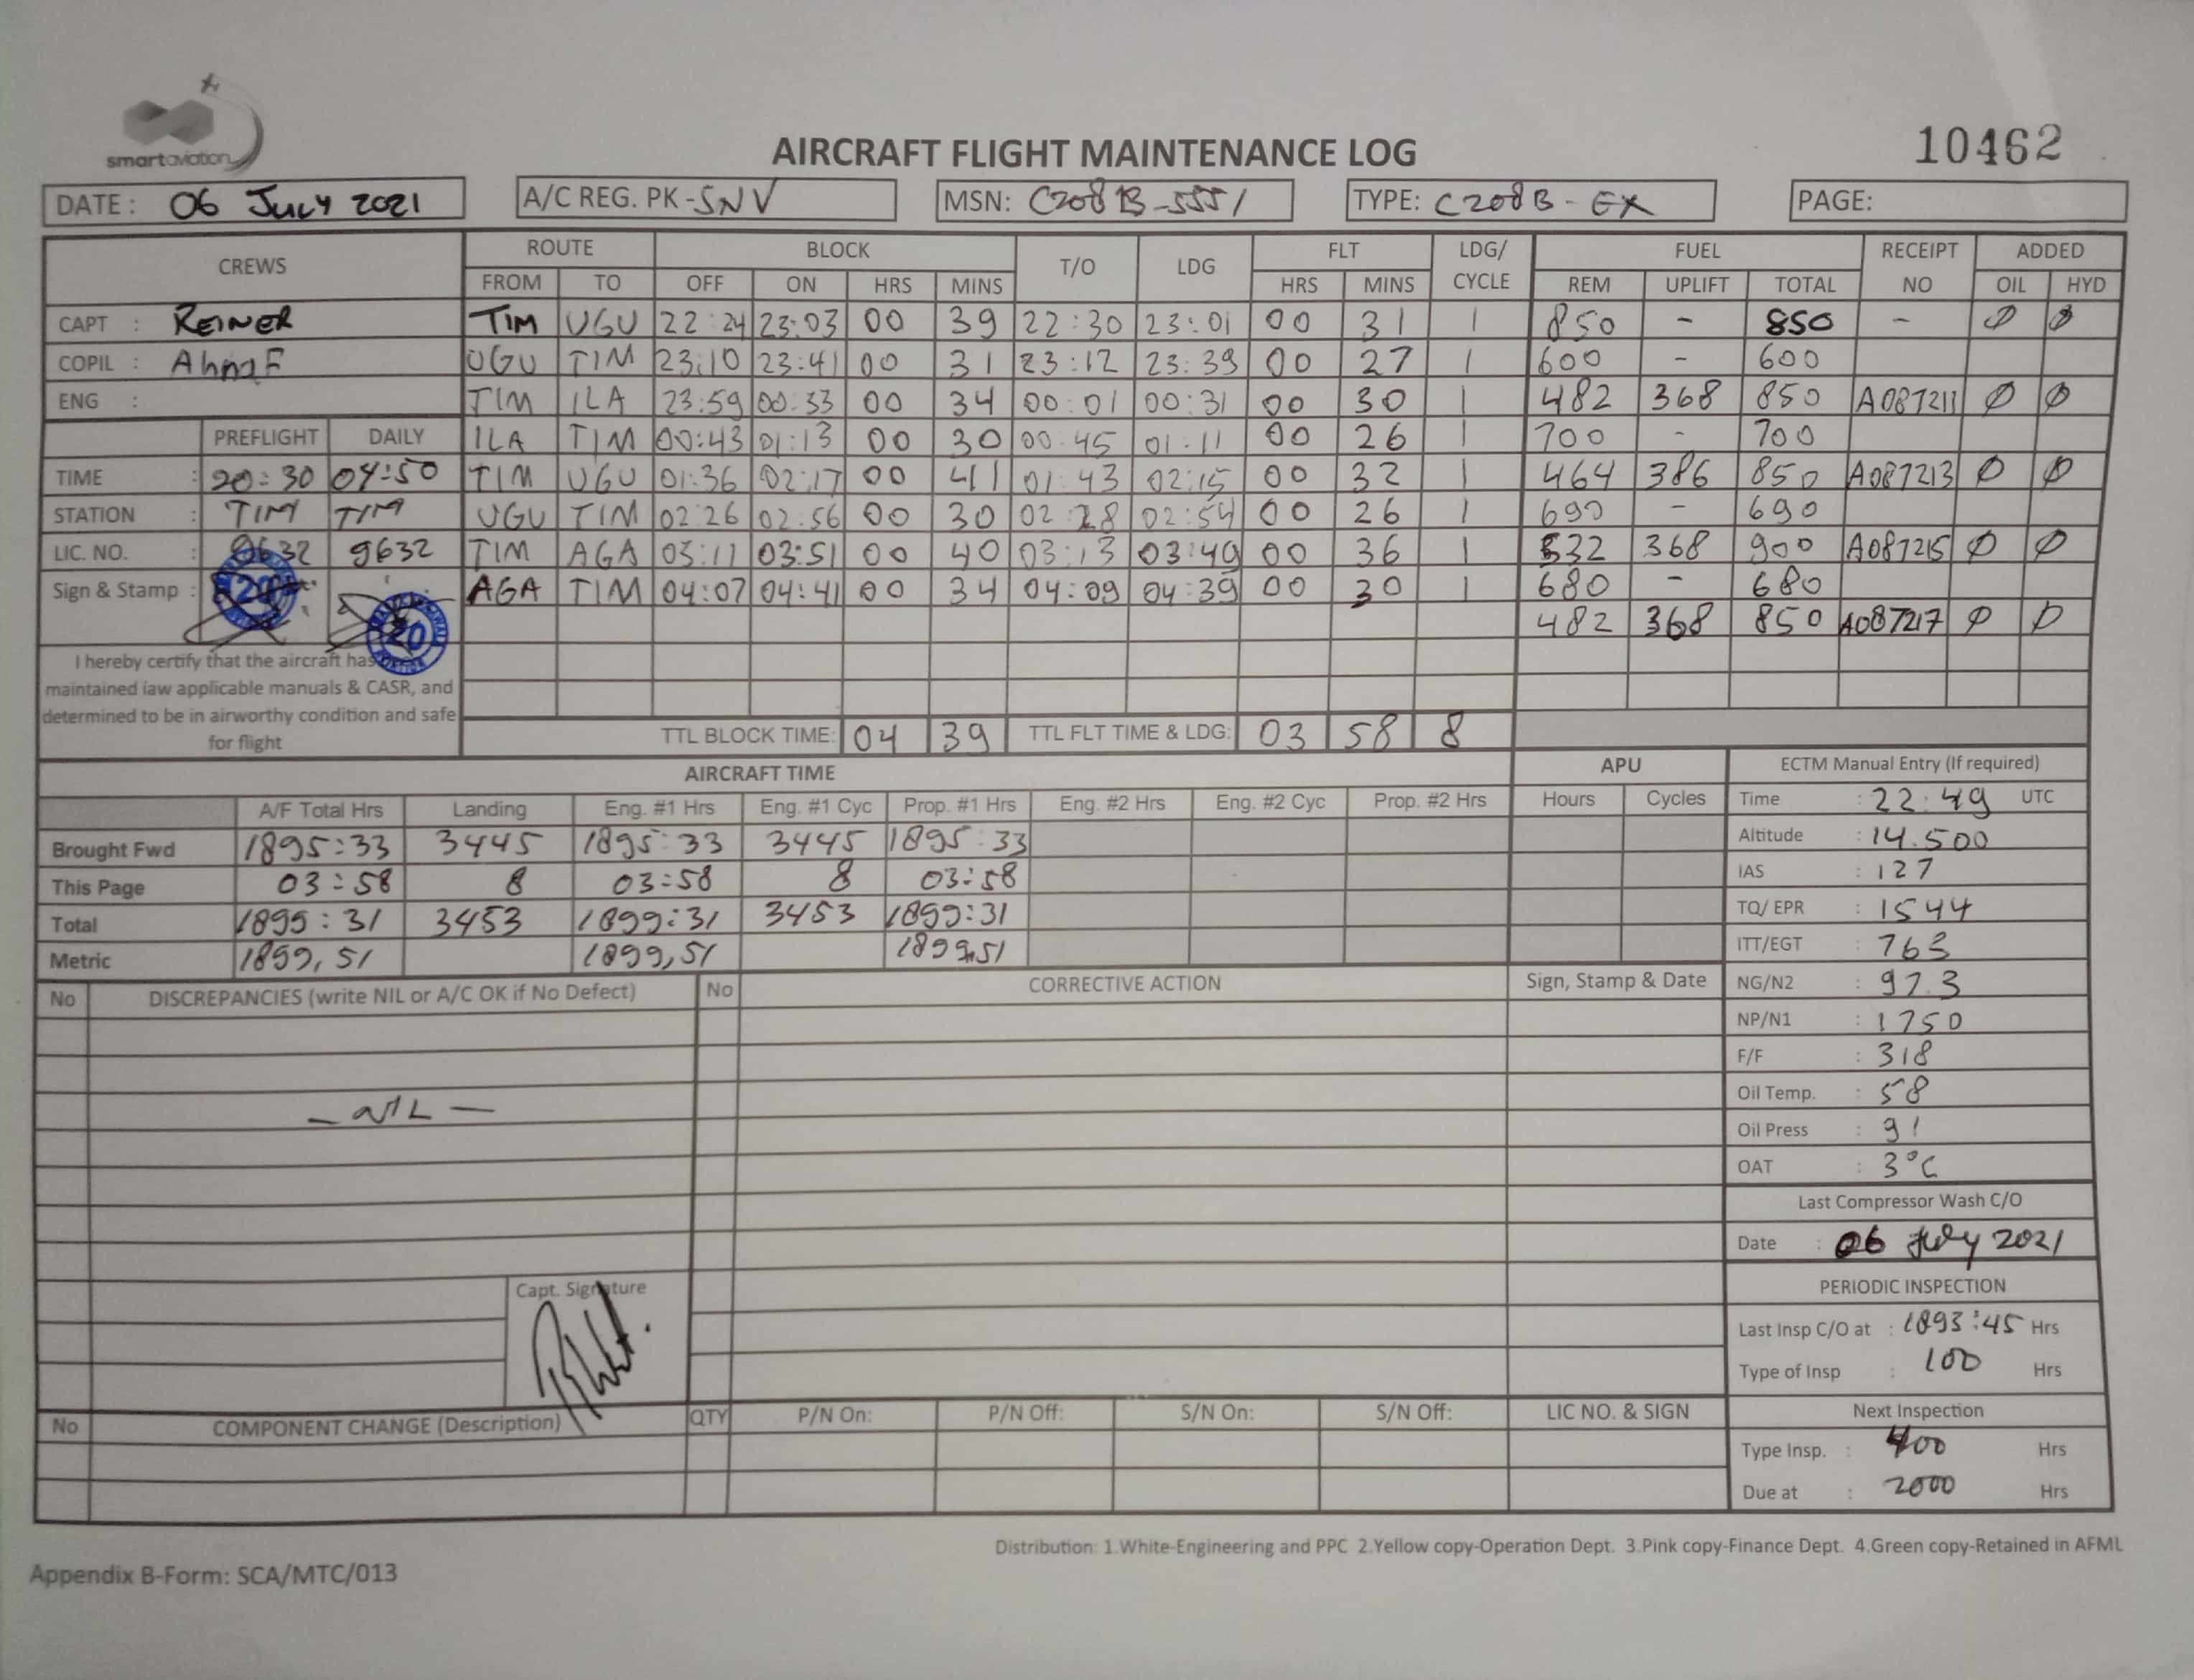 smartaviation
AIRCRAFT FLIGHT MAINTENANCE LOG
10462
DATE : 06 July 2021 A/C REG. PK-SNV MSN: C208B-5551 TYPE: C208B-EX PAGE:
CREWS ROUTE BLOCK T/O LDG FLT LDG/ CYCLE FUEL RECEIPT NO ADDED
FROM TO OFF ON HRS MINS HRS MINS REM UPLIFT TOTAL OIL HYD
CAPT : REINER TIM UGU 22:24 23:03 00 39 22:30 23:01 00 31 1 850 - 850 - Ø Ø
COPIL : AhmaF UGU TIM 23:10 23:41 00 31 23:12 23:39 00 27 1 600 - 600
ENG : TIM ILA 23:59 00:33 00 34 00:01 00:31 00 30 1 482 368 850 A087211 Ø Ø
PREFLIGHT DAILY ILA TIM 00:43 01:13 00 30 00:45 01:11 00 26 1 700 - 700
TIME : 20:30 04:50 TIM UGU 01:36 02:17 00 41 01:43 02:15 00 32 1 464 386 850 A087213 Ø Ø
STATION : TIM TIM UGU TIM 02:26 02:56 00 30 02:28 02:54 00 26 1 690 - 690
LIC. NO. : 9632 9632 TIM AGA 03:11 03:51 00 40 03:13 03:49 00 36 1 532 368 900 A087215 Ø Ø
Sign & Stamp : 20 20 AGA TIM 04:07 04:41 00 34 04:09 04:39 00 30 1 680 - 680
482 368 850 A087217 Ø Ø
I hereby certify that the aircraft has
maintained iaw applicable manuals & CASR, and
determined to be in airworthy condition and safe
for flight
TTL BLOCK TIME: 04 39 TTL FLT TIME & LDG: 03 58 8
AIRCRAFT TIME APU ECTM Manual Entry (If required)
A/F Total Hrs Landing Eng. #1 Hrs Eng. #1 Cyc Prop. #1 Hrs Eng. #2 Hrs Eng. #2 Cyc Prop. #2 Hrs Hours Cycles Time : 22:49 UTC
Brought Fwd 1895:33 3445 1895:33 3445 1895:33 Altitude : 14.500
This Page 03:58 8 03:58 8 03:58 IAS : 127
Total 1899:31 3453 1899:31 3453 1899:31 TQ/ EPR : 1544
Metric 1899,51 1899,51 1899,51 ITT/EGT : 763
No DISCREPANCIES (write NIL or A/C OK if No Defect) No CORRECTIVE ACTION Sign, Stamp & Date NG/N2 : 97.3
NP/N1 : 1750
F/F : 318
Oil Temp. : 58
— NIL —
Oil Press : 91
OAT : 3°C
Last Compressor Wash C/O
Date : 06 July 2021
Capt. Signature
PERIODIC INSPECTION
Last Insp C/O at : 1893:45 Hrs
Type of Insp : 100 Hrs
No COMPONENT CHANGE (Description) QTY P/N On: P/N Off: S/N On: S/N Off: LIC NO. & SIGN Next Inspection
Type Insp. : 400 Hrs
Due at : 2000 Hrs
Distribution: 1.White-Engineering and PPC 2.Yellow copy-Operation Dept. 3.Pink copy-Finance Dept. 4.Green copy-Retained in AFML
Appendix B-Form: SCA/MTC/013